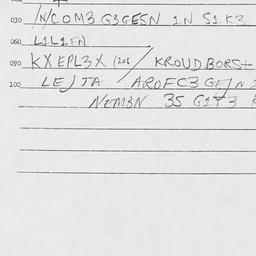 030 /N/COM3 G3GESN 1N S1K3
060 L1L1FN
090 KXEPL3X (208 / KROUDBORST
100 LEJTA / AROFC3 GEJN
NEM3N 35 G1T3